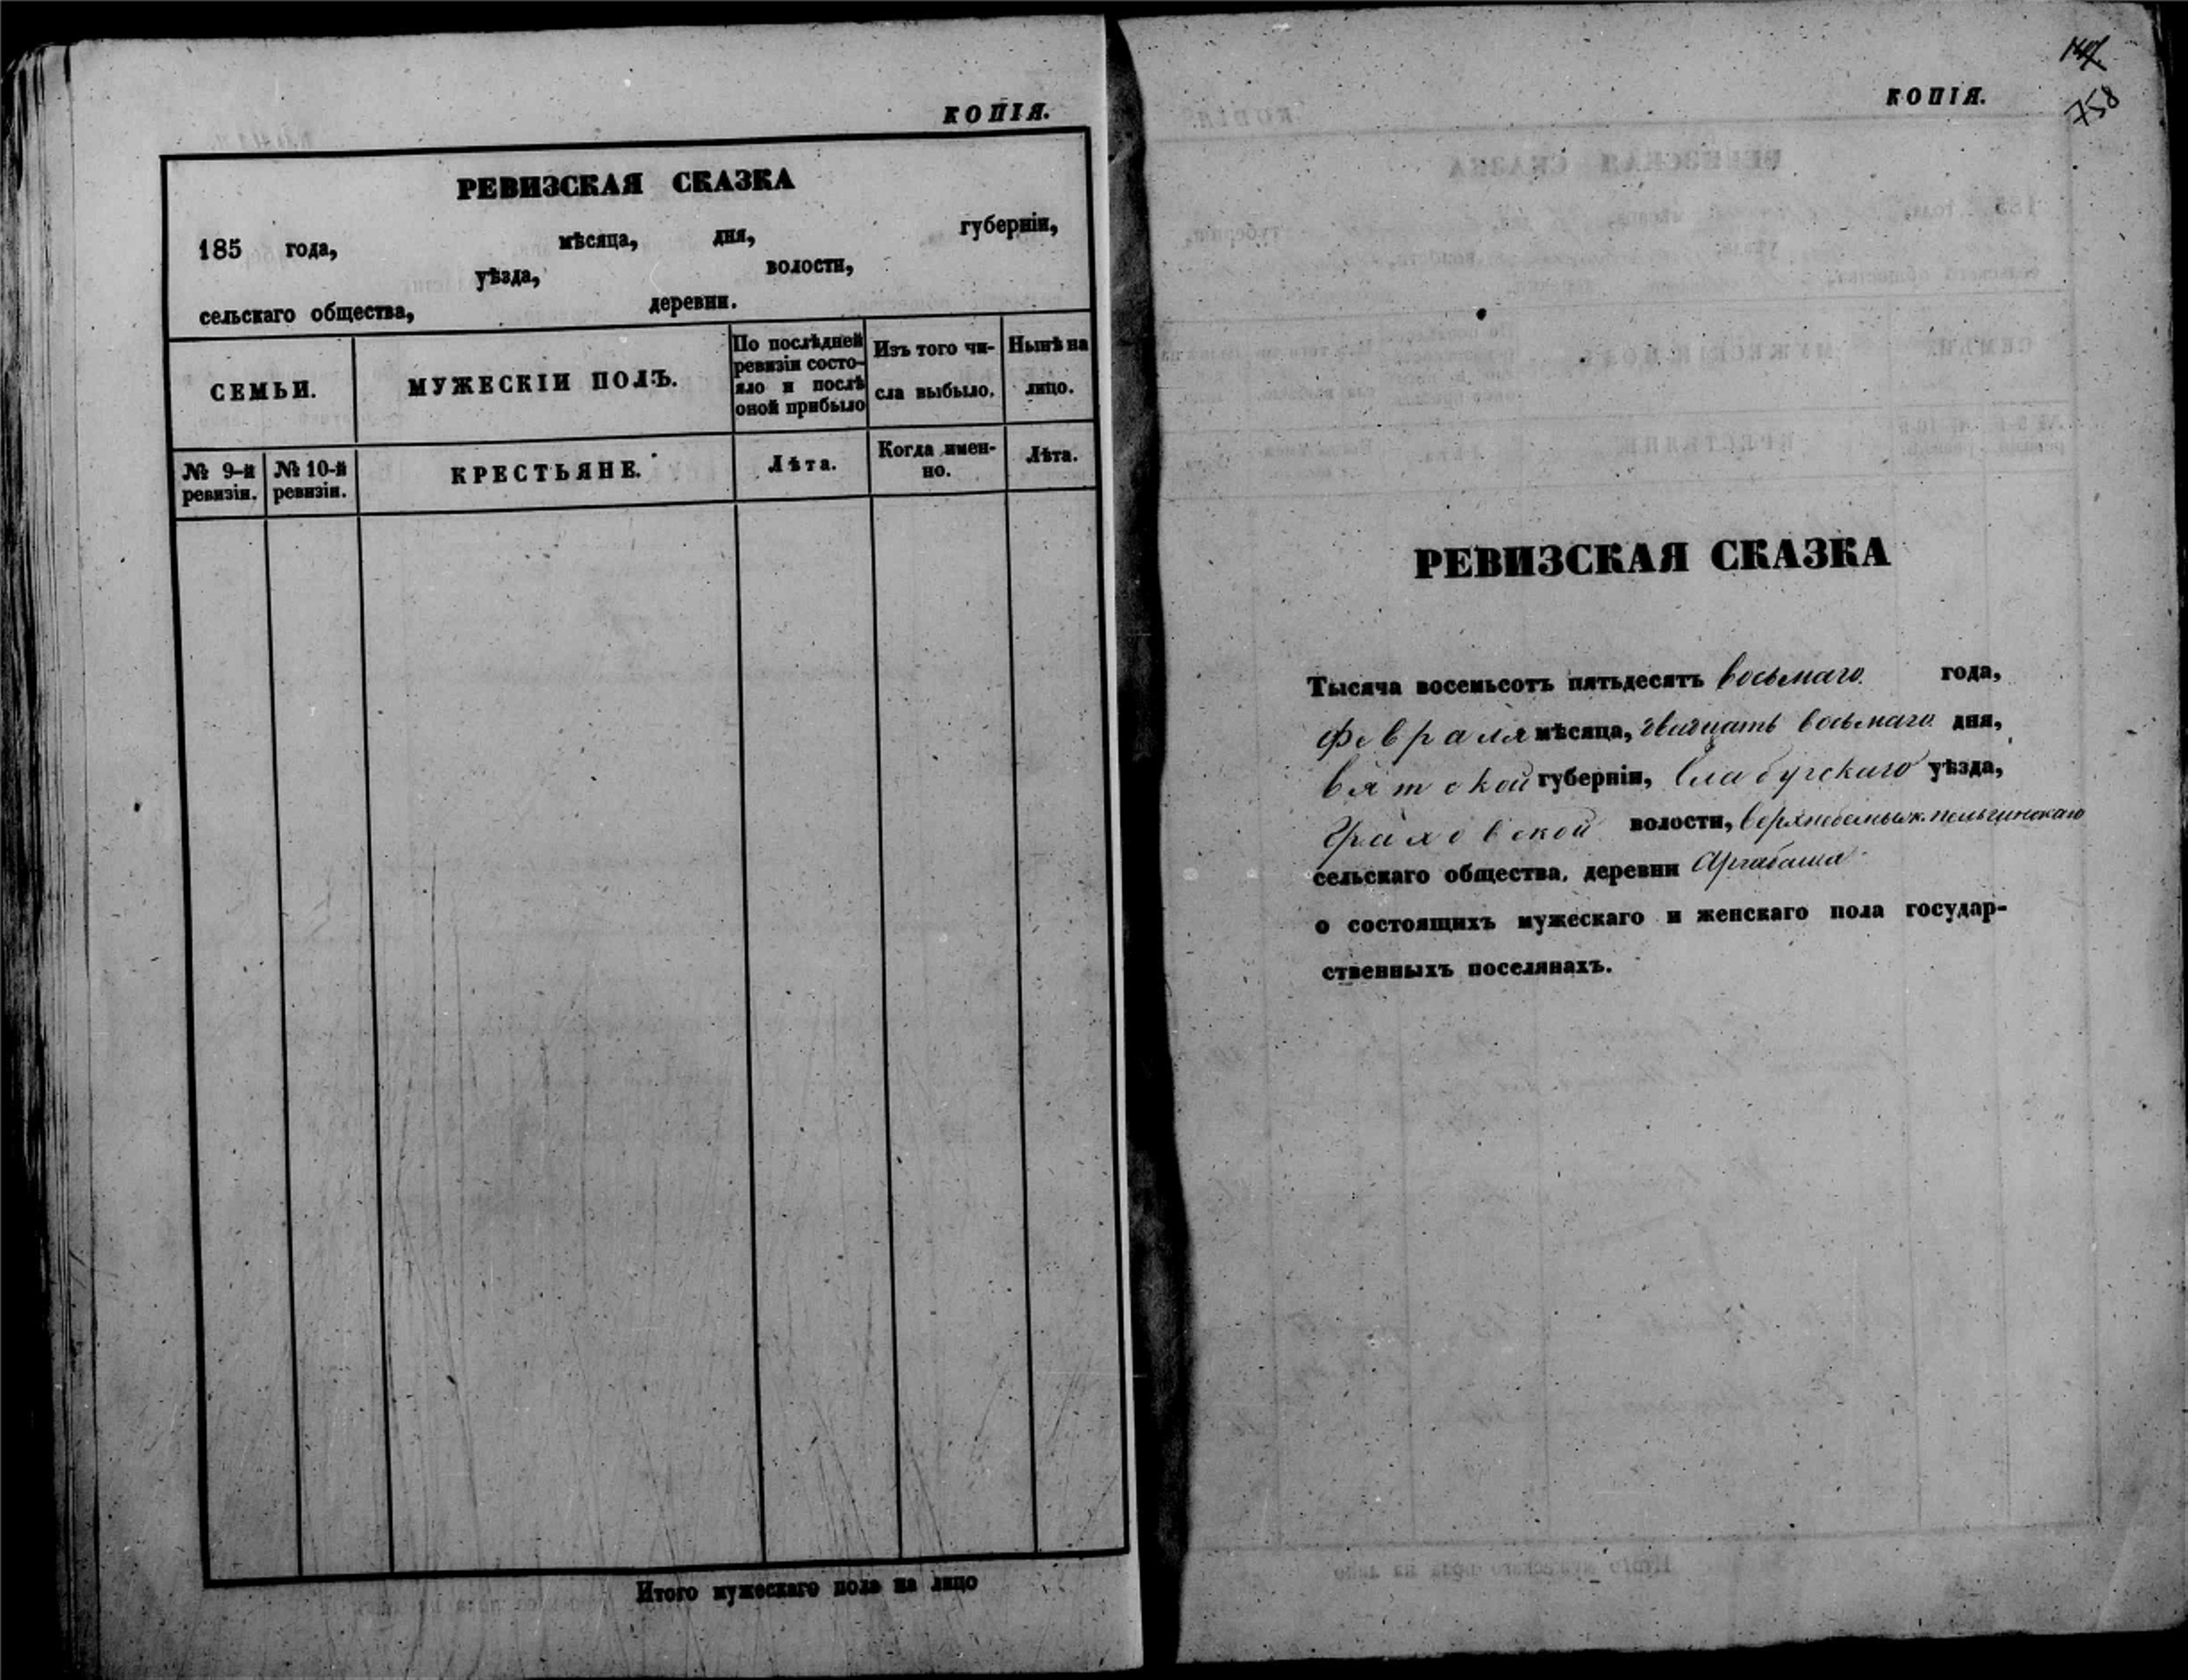 КОПІЯ.
РЕВИЗСКАЯ СКАЗКА
185 года, мѣсяца, дня, губерніи,
уѣзда, волости,
сельскаго общества, деревни.
СЕМЬИ.
МУЖЕСКІЙ ПОЛЪ.
По послѣдней
ревизіи состо-
яло и послѣ
оной прибыло
Изъ того чи-
сла выбыло.
Нынѣ на
лицо.
№ 9-й
ревизіи.
№ 10-й
ревизіи.
КРЕСТЬЯНЕ.
Лѣта.
Когда имен-
но.
Лѣта.
Итого мужескаго пола на лицо
758
КОПІЯ.
РЕВИЗСКАЯ СКАЗКА
Тысяча восемьсотъ пятьдесятъ восьмаго года,
февраля мѣсяца, двадцать восьмаго дня,
Вятской губерніи, Елабугскаго уѣзда,
Граховской волости,
сельскаго общества, деревни Аргабаша
о состоящихъ мужескаго и женскаго пола государ-
ственныхъ поселянахъ.